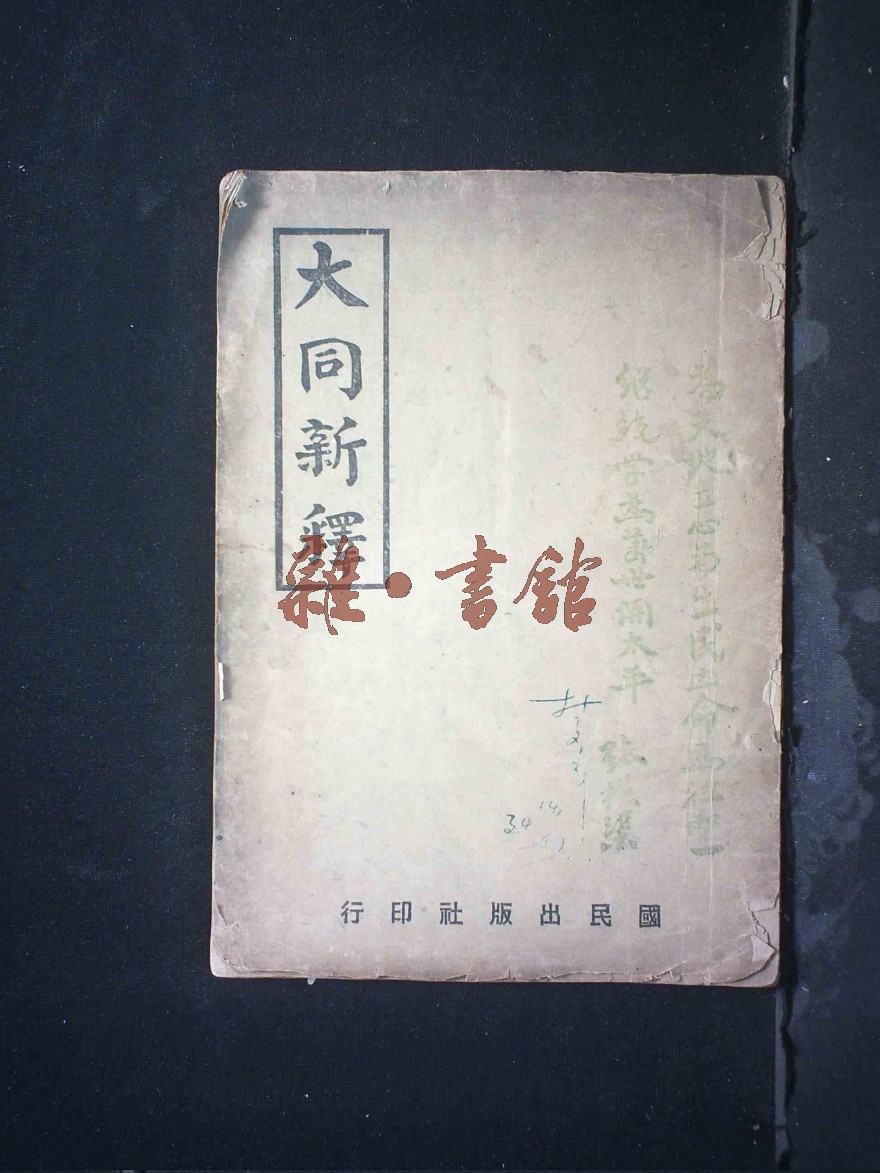 為天地立心為生民立命為往聖
繼絕学為萬世開太平 張横渠
大同新釋
國民出版社印行
雜·書館